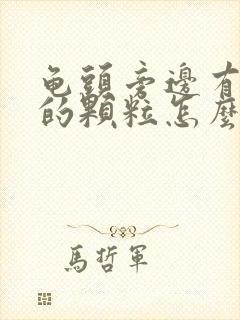 龟頭旁邊有
的顆粒怎麼
馬哲軍